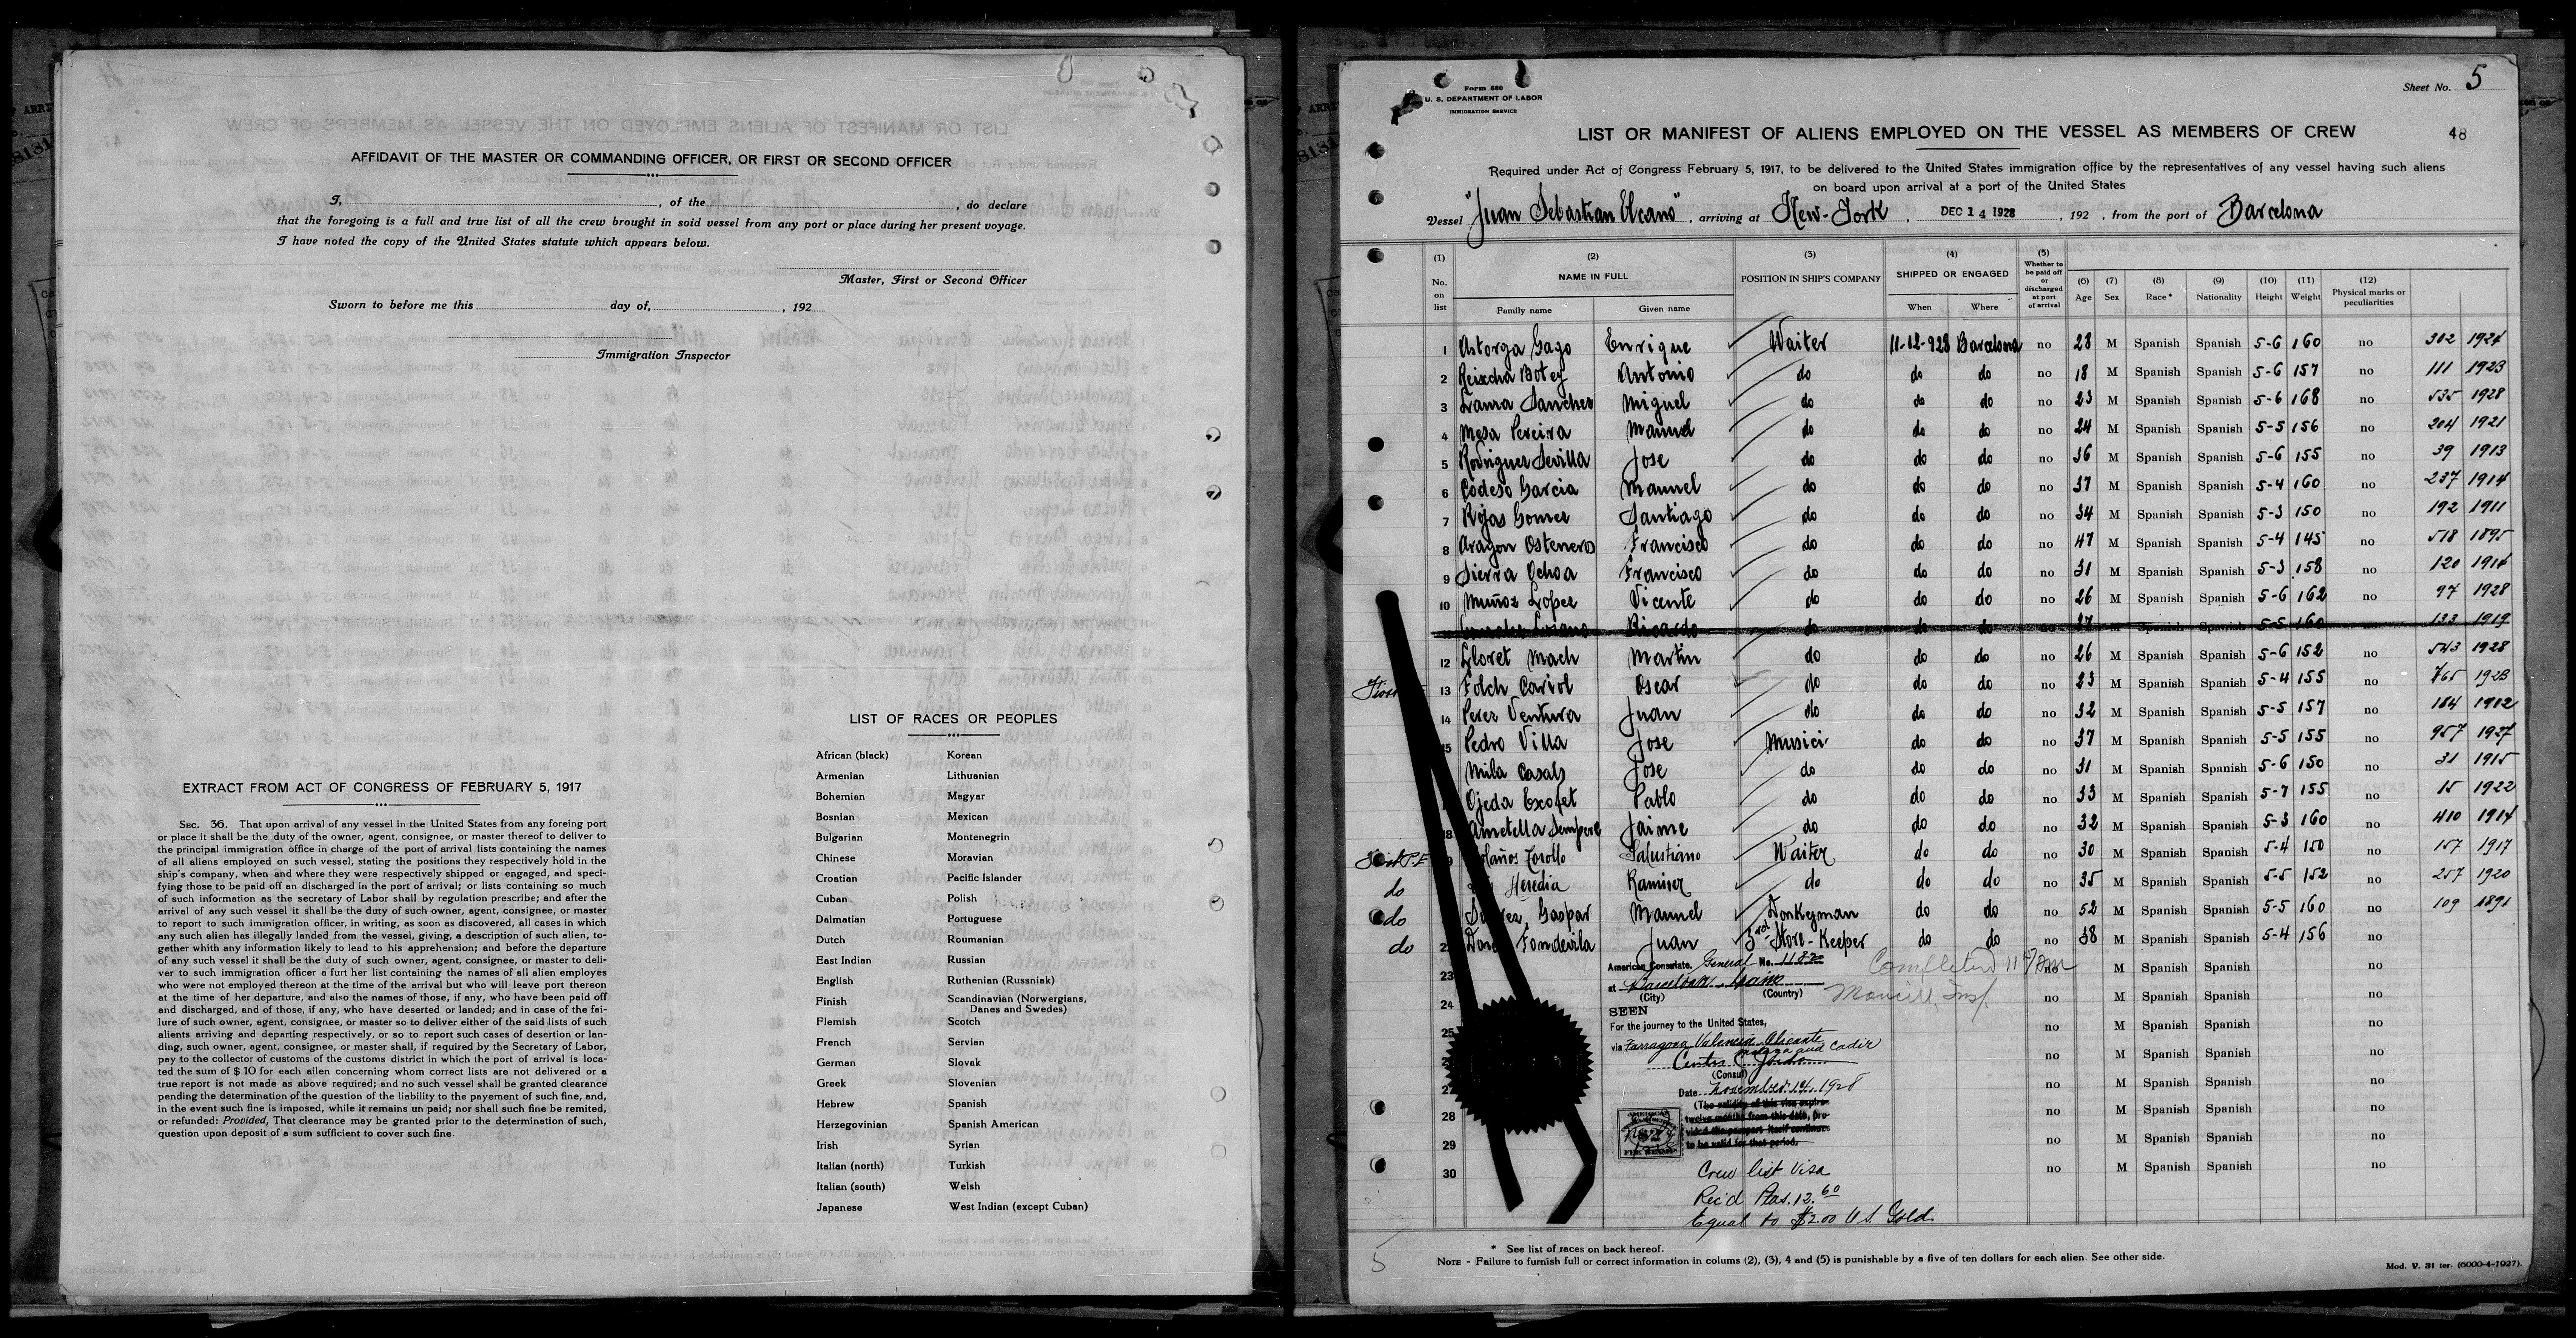 AFFIDAVIT OF THE MASTER OR COMMANDING OFFICER, OR FIRST OR SECOND OFFICER
I, , of the , do declare
that the foregoing is a full and true list of all the crew brought in soid vessel from any port or place during her present voyage.
I have noted the copy of the United States statute which appears below.
Master, First or Second Officer
Sworn to before me this day of, , 192
Immigration Inspector
EXTRACT FROM ACT OF CONGRESS OF FEBRUARY 5, 1917
SEC. 36. That upon arrival of any vessel in the United States from any foreing port
or place it shall be the duty of the owner, agent, consignee, or master thereof to deliver to
the principal immigration office in charge of the port of arrival lists containing the names
of all aliens employed on such vessel, stating the positions they respectively hold in the
ship's company, when and where they were respectively shipped or engaged, and speci-
fying those to be paid off an discharged in the port of arrival; or lists containing so much
of such information as the secretary of Labor shall by regulation prescribe; and after the
arrival of any such vessel it shall be the duty of such owner, agent, consignee, or master
to report to such immigration officer, in writing, as soon as discovered, all cases in which
any such alien has illegally landed from the vessel, giving, a description of such alien, to-
gether whith any information likely to lead to his apprehension; and before the departure
of any such vessel it shall be the duty of such owner, agent, consignee, or master to deli-
ver to such immigration officer a furt her list containing the names of all alien employes
who were not employed thereon at the time of the arrival but who will leave port thereon
at the time of her departure, and also the names of those, if any, who have been paid off
and discharged, and of those, if any, who have deserted or landed; and in case of the fai-
lure of such owner, agent, consignee, or master so to deliver either of the said lists of such
alients arriving and departing respectively, or so to report such cases of desertion or lan-
ding, such owner, agent, consignee, or master shall, if required by the Secretary of Labor,
pay to the collector of customs of the customs district in which the port of arrival is loca-
ted the sum of $ 10 for each ailen concerning whom correct lists are not delivered or a
true report is not made as above required; and no such vessel shall be granted clearance
pending the determination of the question of the liability to the payement of such fine, and,
in the event such fine is imposed, while it remains un paid; nor shall such fine be remited,
or refunded: Provided, That clearance may be granted prior to the determination of such,
question upon deposit of a sum sufficient to cover such fine.
LIST OF RACES OR PEOPLES
African (black) Korean
Armenian Lithuanian
Bohemian Magyar
Bosnian Mexican
Bulgarian Montenegrin
Chinese Moravian
Croatian Pacific Islander
Cuban Polish
Dalmatian Portuguese
Dutch Roumanian
East Indian Russian
English Ruthenian (Russniak)
Finish Scandinavian (Norwergians,
Danes and Swedes)
Flemish Scotch
French Servian
German Slovak
Greek Slovenian
Hebrew Spanish
Herzegovinian Spanish American
Irish Syrian
Italian (north) Turkish
Italian (south) Welsh
Japanese West Indian (except Cuban)
Form 680
U. S. DEPARTMENT OF LABOR
IMMIGRATION SERVICE
Sheet No. 5
LIST OR MANIFEST OF ALIENS EMPLOYED ON THE VESSEL AS MEMBERS OF CREW
48
Required under Act of Congress February 5, 1917, to be delivered to the United States immigration office by the representatives of any vessel having such aliens
on board upon arrival at a port of the United States
Vessel "Juan Sebastian Elcano", arriving at New-York, DEC 14 1928, 192 , from the port of Barcelona
(1) No. on list (2) NAME IN FULL Family name Given name (3) POSITION IN SHIP'S COMPANY (4) SHIPPED OR ENGAGED When Where (5) Whether to be paid off or discharged at port of arrival (6) Age (7) Sex (8) Race * (9) Nationality (10) Height (11) Weight (12) Physical marks or peculiarities
1 Astorga Gago Enrique Waiter 11-12-928 Barcelona no 28 M Spanish Spanish 5-6 160 no 302 1924
2 Reixcha Botey Antonio do do do no 18 M Spanish Spanish 5-6 157 no 111 1923
3 Launa Sanchez Miguel do do do no 23 M Spanish Spanish 5-6 168 no 535 1928
4 Mesa Pereira Manuel do do do no 24 M Spanish Spanish 5-5 156 no 204 1921
5 Rodriguez Sevilla Jose do do do no 36 M Spanish Spanish 5-6 155 no 39 1913
6 Codeso Garcia Manuel do do do no 37 M Spanish Spanish 5-4 160 no 237 1914
7 Rojas Gomez Santiago do do do no 34 M Spanish Spanish 5-3 150 no 192 1911
8 Aragon Osteneros Francisco do do do no 47 M Spanish Spanish 5-4 145 no 518 1895
9 Sierra Ochoa Francisco do do do no 31 M Spanish Spanish 5-3 158 no 120 1914
10 Muñoz Lopez Vicente do do do no 26 M Spanish Spanish 5-6 162 no 97 1928
Ricardo do do do no 27 M Spanish Spanish 5-5 160 no 133 1919
12 Lloret Mach Martin do do do no 26 M Spanish Spanish 5-6 152 no 543 1928
13 Folch Cariol Oscar do do do no 23 M Spanish Spanish 5-4 155 no 765 1923
14 Perez Ventura Juan do do do no 32 M Spanish Spanish 5-5 157 no 184 1912
15 Pedro Villa Jose Musici do do no 37 M Spanish Spanish 5-5 155 no 957 1927
Mila Casals Jose do do do no 31 M Spanish Spanish 5-6 150 no 31 1915
Ojeda Exofet Pablo do do do no 33 M Spanish Spanish 5-7 155 no 15 1922
18 Ametella Sempere Jaime do do do no 32 M Spanish Spanish 5-3 160 no 410 1914
Salustiano Waiter do do no 30 M Spanish Spanish 5-4 150 no 157 1917
do Heredia Ramirez do do do no 35 M Spanish Spanish 5-5 152 no 257 1920
do Gaspar Manuel Donkeyman do do no 52 M Spanish Spanish 5-5 160 no 109 1891
do Fondevila Juan 3rd Store-Keeper do do no 38 M Spanish Spanish 5-4 156 no
23 no M Spanish Spanish no
24 no M Spanish Spanish no
25 no M Spanish Spanish no
no M Spanish Spanish no
no M Spanish Spanish no
28 no M Spanish Spanish no
29 no M Spanish Spanish no
30 no M Spanish Spanish no
American Consulate. General No. 1182
at Barcelona, Spain
(City) (Country)
Completed
SEEN
For the journey to the United States,
via Tarragona Valencia Alicante
Malaga and Cadiz
(Consul)
Date November 14, 1928
(The validity of this visa expires
twelve months from this date, pro-
vided the passport itself continues
to be valid for that period.
Crew list Visa
Rec'd Ptas. 12.60
Equal to $2.00 U.S. Gold
* See list of races on back hereof.
NOTE - Failure to furnish full or correct information in colums (2), (3), 4 and (5) is punishable by a five of ten dollars for each alien. See other side.
Mod. V. 31 ter. (6000-4-1927).
5